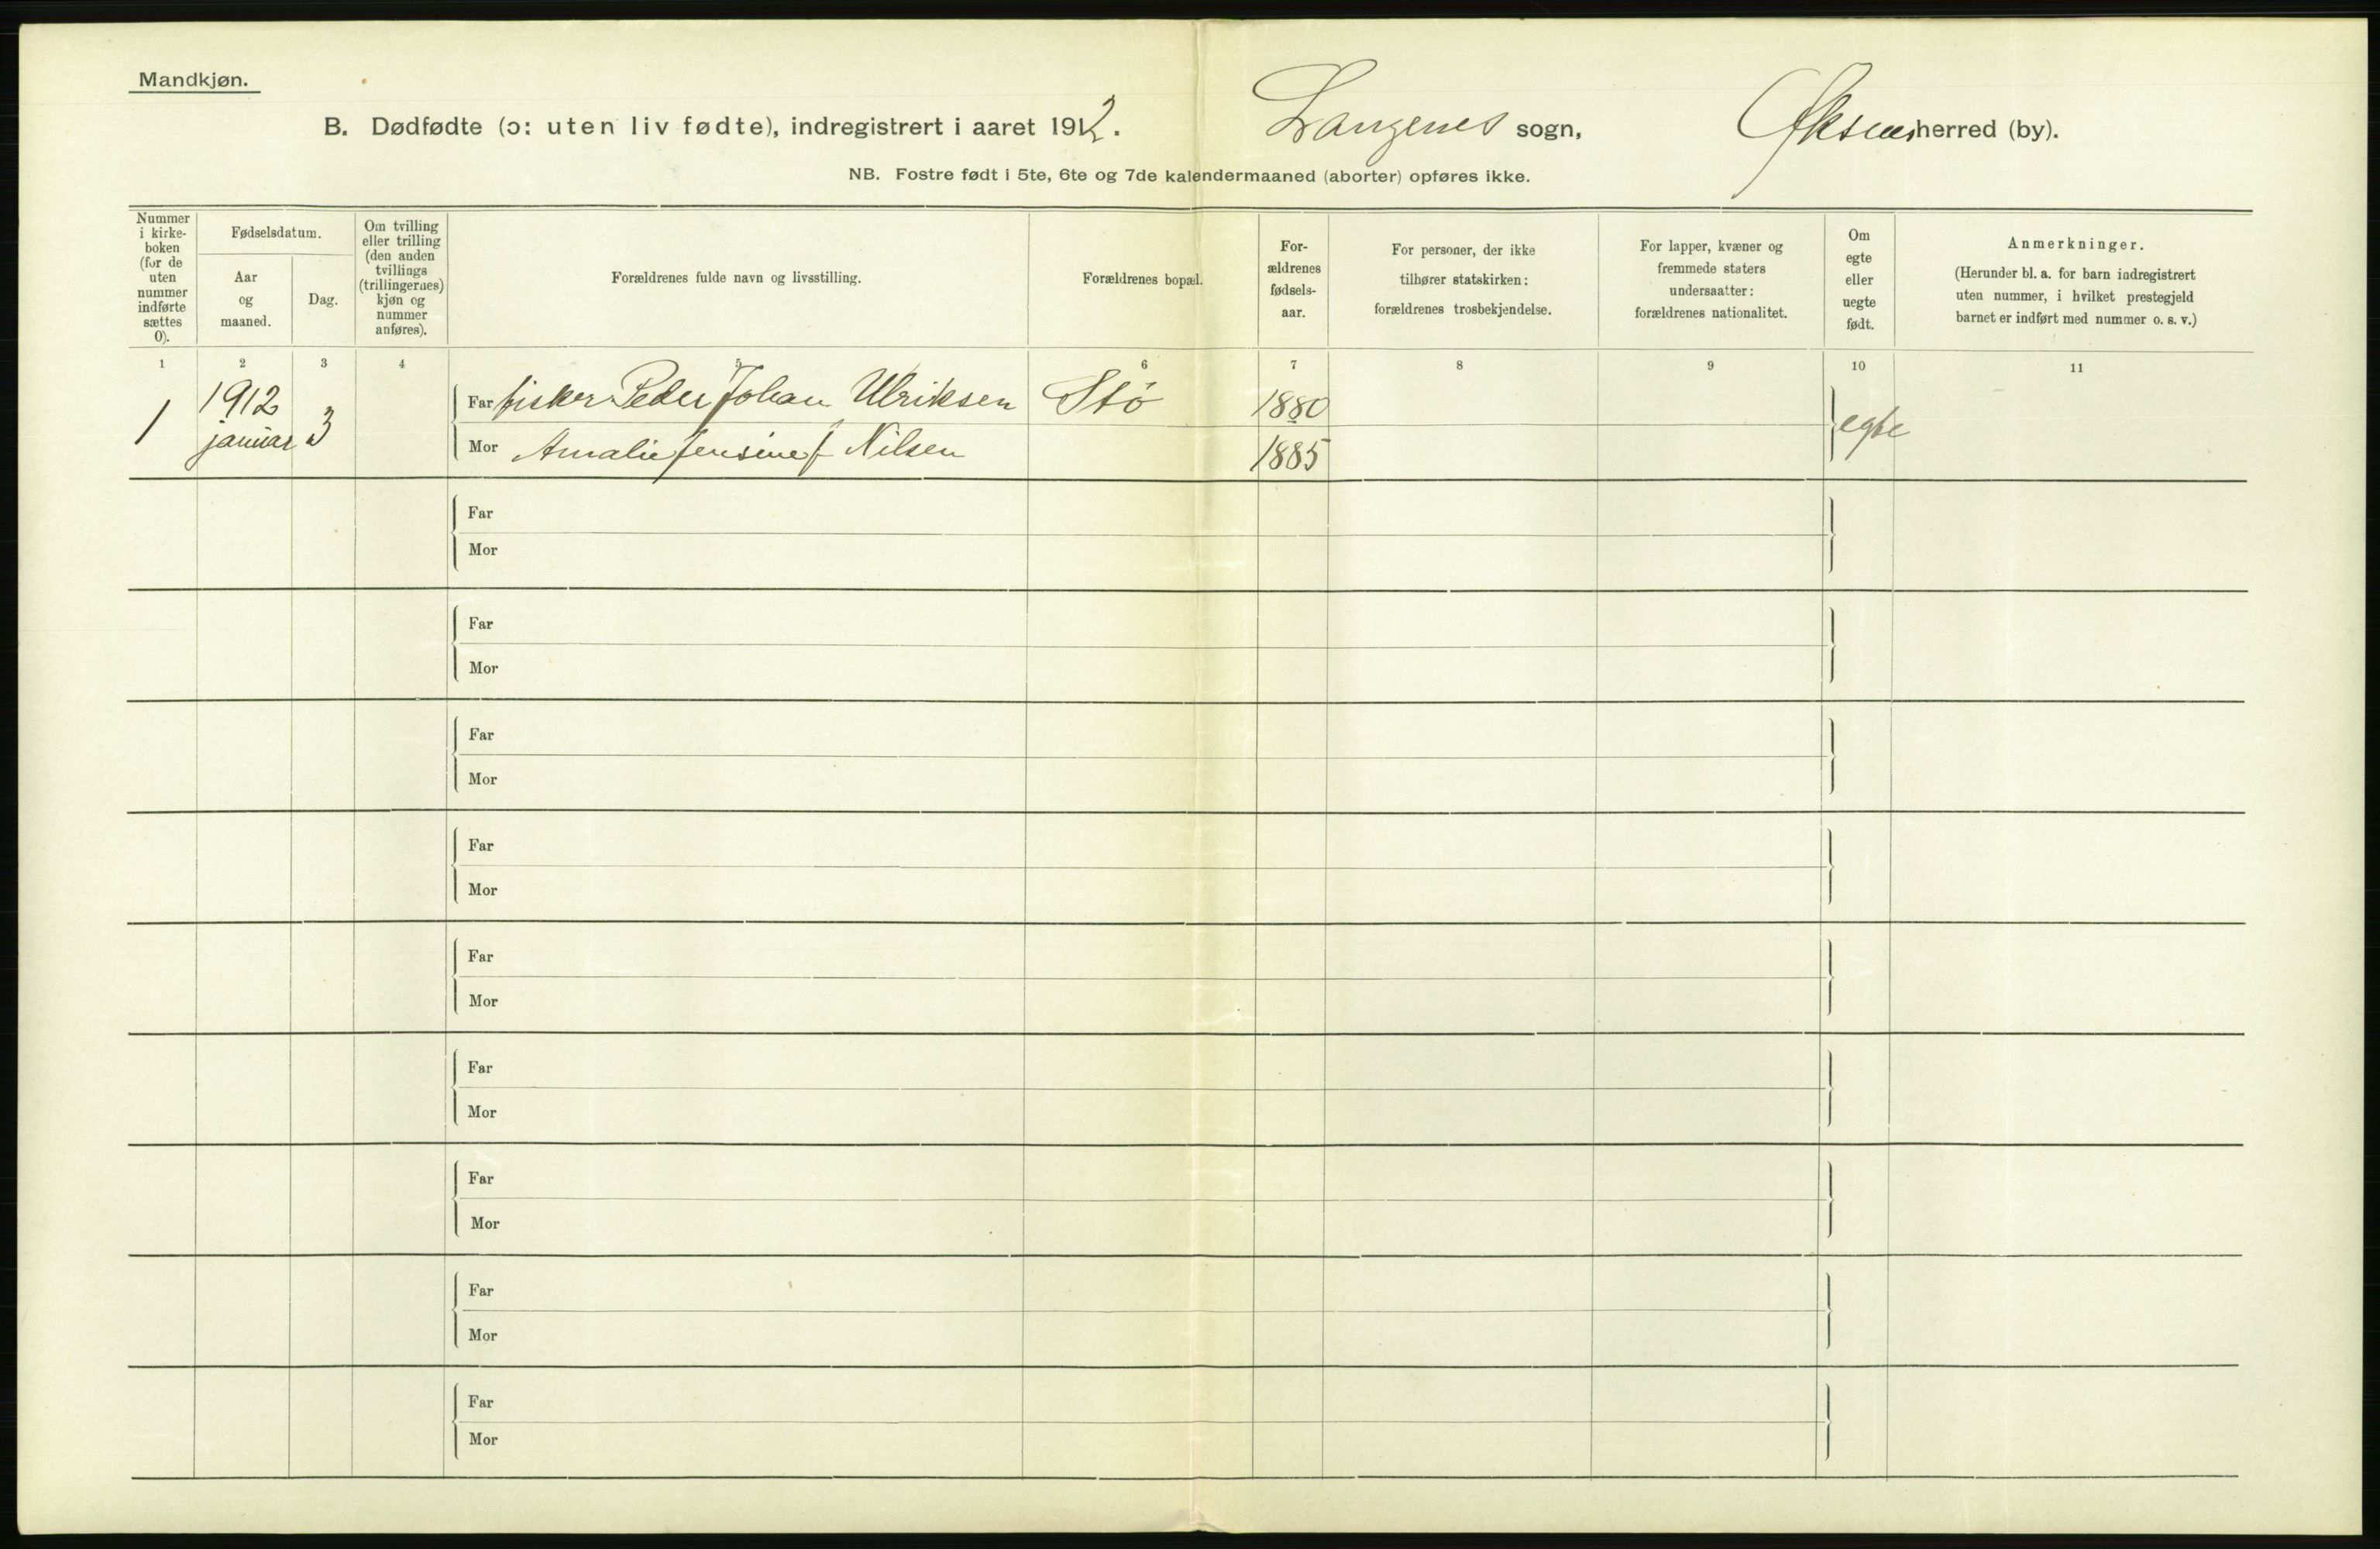 Mandkjøn.
B. Dødfødte (ɔ: uten liv fødte), indregistrert i aaret 1912. Langenes sogn, Øksnes herred (by).
NB. Fostre født i 5te, 6te og 7de kalendermaaned (aborter) opføres ikke.
Nummer
i kirke-
boken
(for de
uten
nummer
indførte
sættes
0).
Fødselsdatum.
Aar
og
maaned.
Dag.
Om tvilling
eller trilling
(den anden
tvillings
(trillingernes)
kjøn og
nummer
anføres).
Forældrenes fulde navn og livsstilling.
Forældrenes bopæl.
For-
ældrenes
fødsels-
aar.
For personer, der ikke
tilhører statskirken:
forældrenes trosbekjendelse.
For lapper, kvæner og
fremmede staters
undersaatter:
forældrenes nationalitet.
Om
egte
eller
uegte
født.
Anmerkninger.
(Herunder bl. a. for barn indregistrert
uten nummer, i hvilket prestegjeld
barnet er indført med nummer o. s. v.)
1 2 3 4 5 6 7 8 9 10 11
1 1912 januar 3 Far fisker Peder Johan Ulriksen Stö 1880 egte
Mor Amalie Jensine f Nilsen 1885
Far
Mor
Far
Mor
Far
Mor
Far
Mor
Far
Mor
Far
Mor
Far
Mor
Far
Mor
Far
Mor